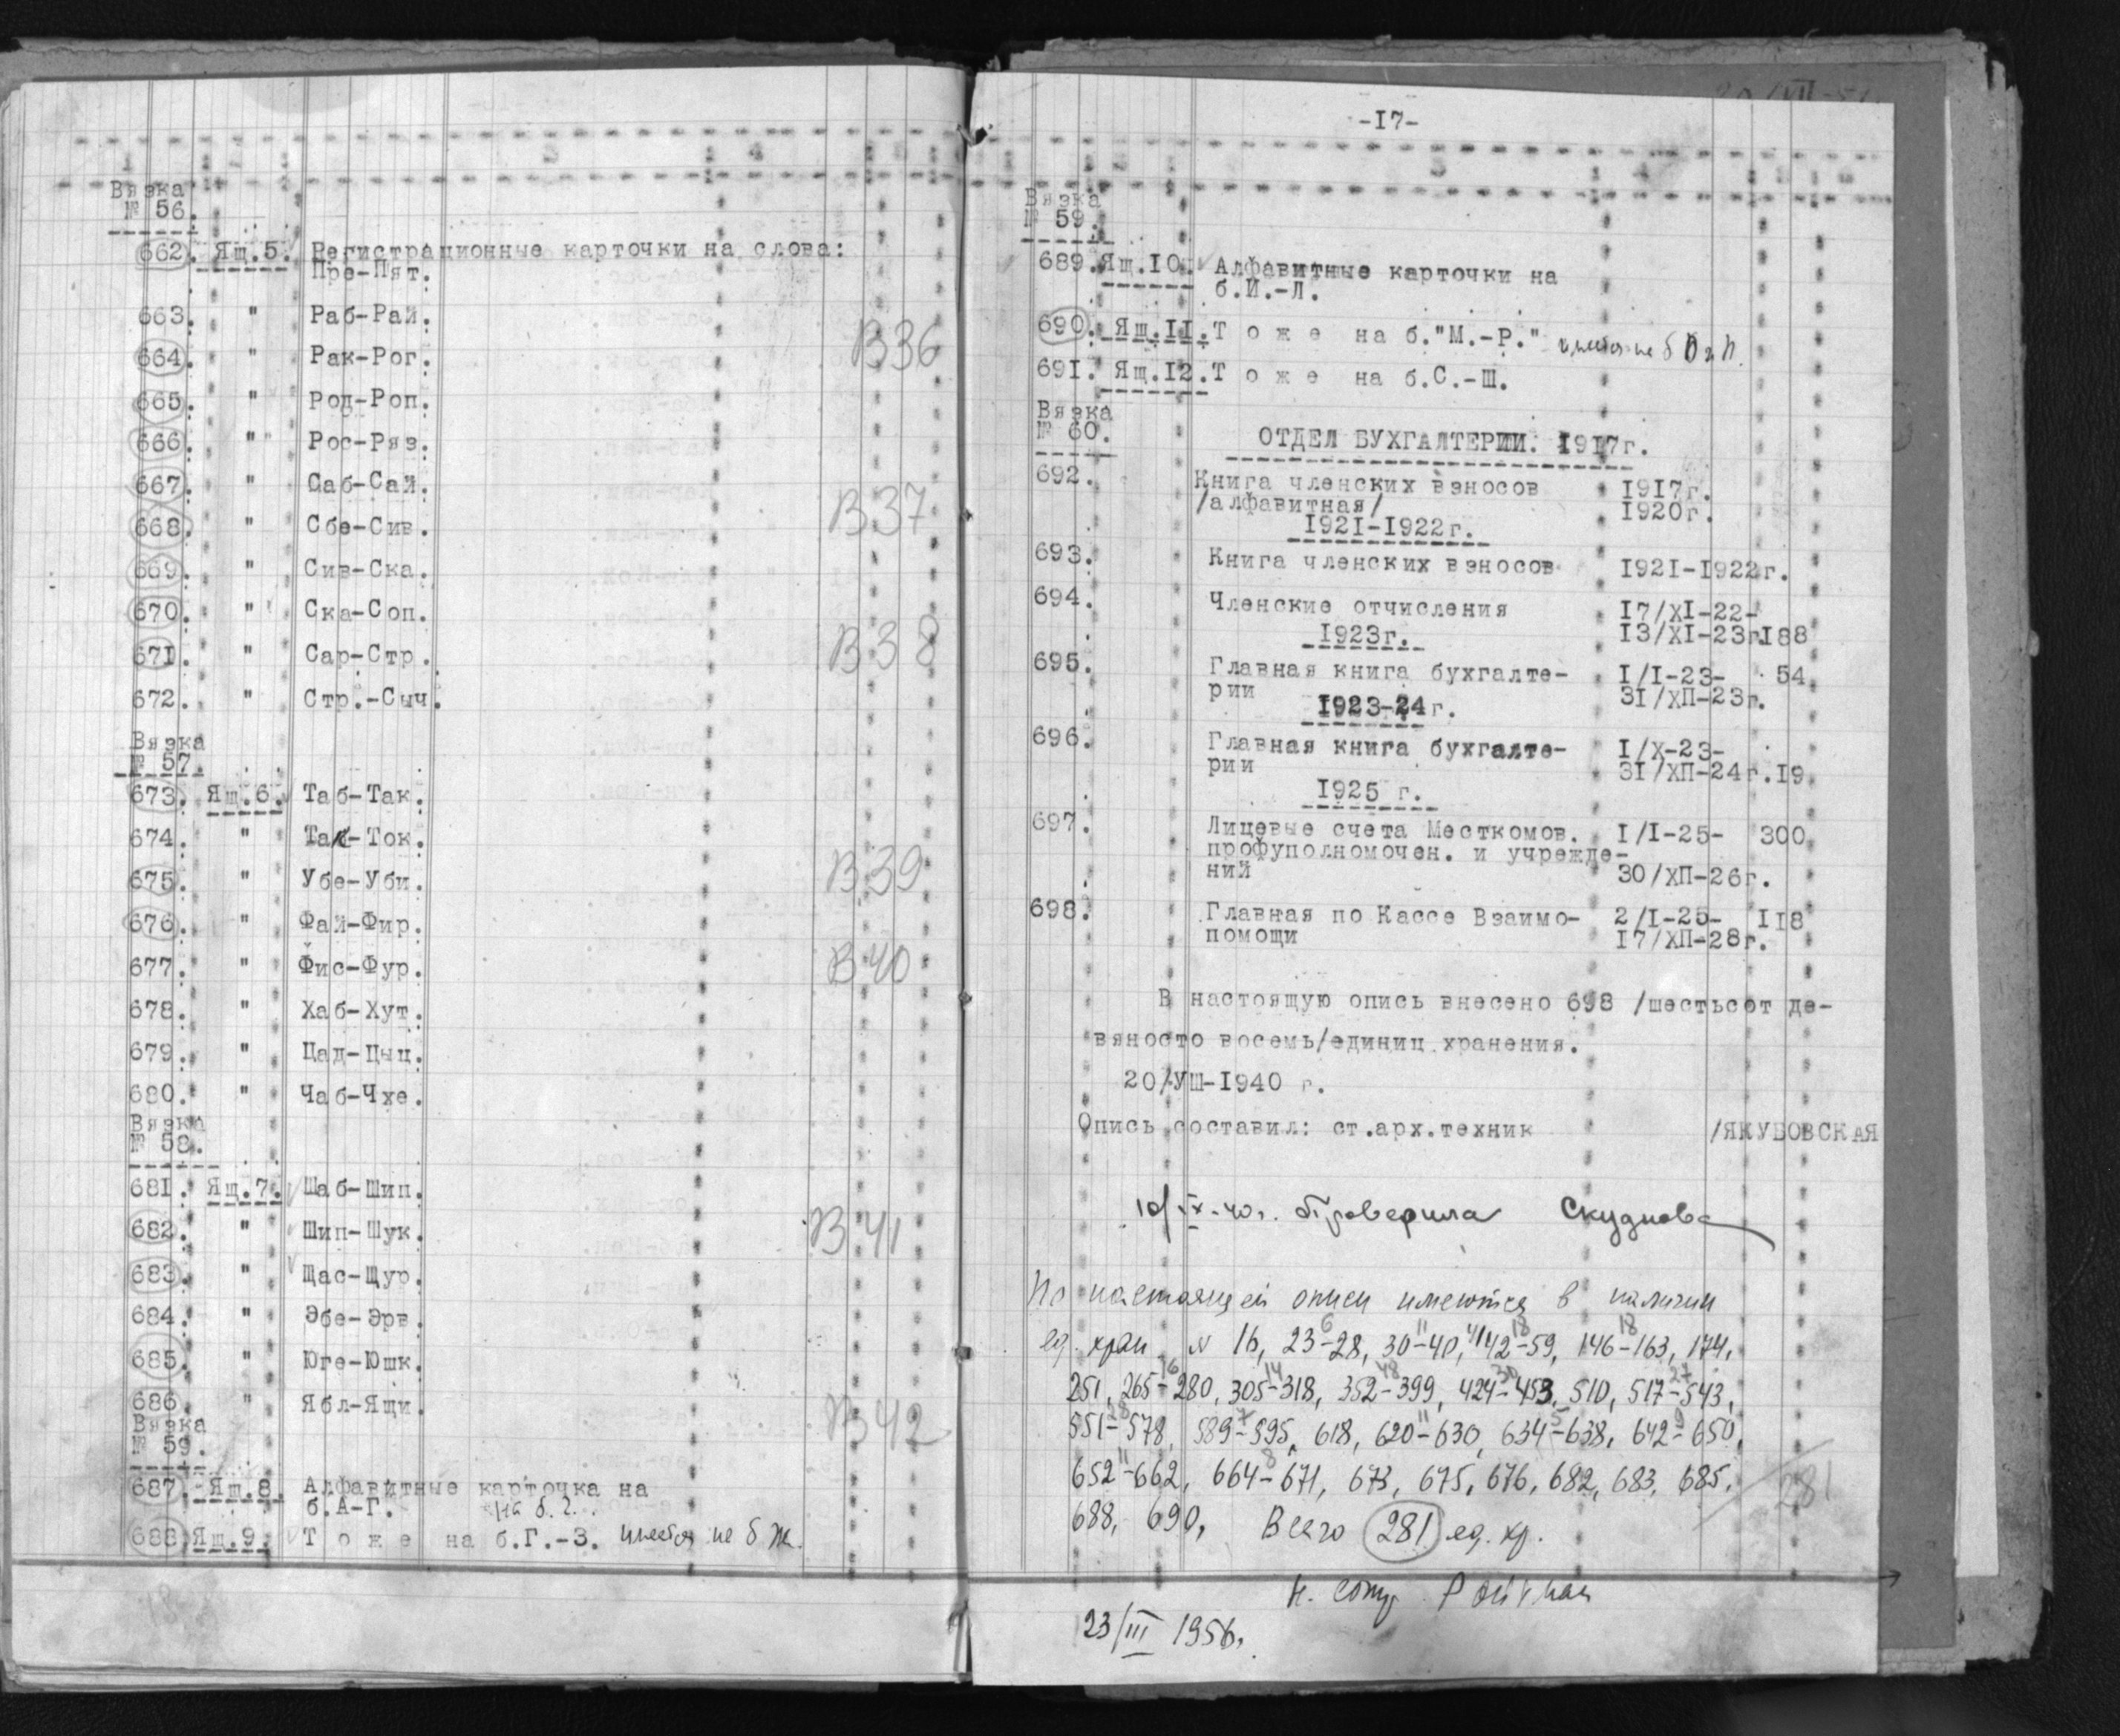 Вязка
№ 56.
662. Ящ.5. Регистрационные карточки на слова:
Пре-Пят.
663. " Раб-Рай.
664. " Рак-Рог.
В36
665. " Род-Роп.
666. " Рос-Ряз.
667. " Саб-Сай.
668. " Сбе-Сив.
В37
669. " Сив-Ска.
670. " Ска-Соп.
671. " Сар-Стр.
В38
672. " Стр.-Сыч.
Вязка
№ 57.
673. Ящ.6. Таб-Так.
674. " Так-Ток.
675. " Убе-Уби.
В39
676. " Фай-Фир.
677. " Фис-Фур.
В40
678. " Хаб-Хут.
679. " Цад-Цыц.
680. " Чаб-Чхе.
Вязка
№ 58.
681. Ящ.7. Шаб-Шип.
682. " Шип-Шук.
В41
683. " Щас-Щур.
684. " Эбе-Эрв.
685. " Юге-Юшк.
686. " Ябл-Ящи.
В42
Вязка
№ 59.
687. Ящ.8. Алфавитные карточка на
б.А-Г. на б. Г.
688 Ящ.9. Т о ж е на б.Г.-З. имеется не б Ж.
-I7-
Вязка
№ 59.
689. Ящ.IO. Алфавитные карточки на
б.И.-Л.
690. Ящ.II. Т о ж е на б."М.-Р." имеется не б О и П.
691. Ящ.I2. Т о ж е на б.С.-Ш.
Вязка
№ 60.
ОТДЕЛ БУХГАЛТЕРИИ. I9I7г.
692. Книга членских взносов I9I7г.
/алфавитная/ I920г.
I92I-I922г.
693. Книга членских взносов I92I-I922г.
694. Членские отчисления I7/XI-22-
I923г. I3/XI-23г.I88
695. Главная книга бухгалте- I/I-23- 54
рии 3I/ХП-23г.
I923-24г.
696. Главная книга бухгалте- I/X-23-
рии 3I/ХП-24г.I9
I925 г.
697. Лицевые счета Месткомов. I/I-25- 300
профуполномочен. и учрежде-
ний 30/ХП-26г.
698. Главная по Кассе Взаимо- 2/I-25- II8
помощи I7/ХП-28г.
В настоящую опись внесено 698 /шестьсот де-
вяносто восемь/единиц хранения.
20/УШ-I940 г.
Опись составил: ст.арх.техник /ЯКУБОВСКАЯ
10/IX-40г. Проверила Скуднова
По настоящей описи имеются в наличии
6 11 18 18
ед. хран № 16, 23-28, 30-40, 41, 42-59, 146-163, 174,
16 14 48 30 27
251, 265-280, 305-318, 352-399, 424-453, 510, 517-543,
28 7 11 5 9
551-578, 589-595, 618, 620-630, 634-638, 642-650,
11 8
652-662, 664-671, 673, 675, 676, 682, 683, 685,
281
688, 690, Всего 281 ед. хр.
н. сотр.
23/III 1956.